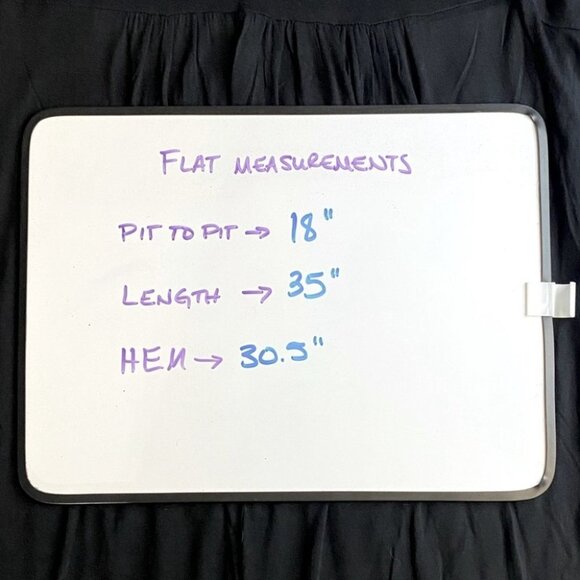 FLAT MEASUREMENTS
PIT TO PIT → 18"
LENGTH → 35"
HEM → 30.5"